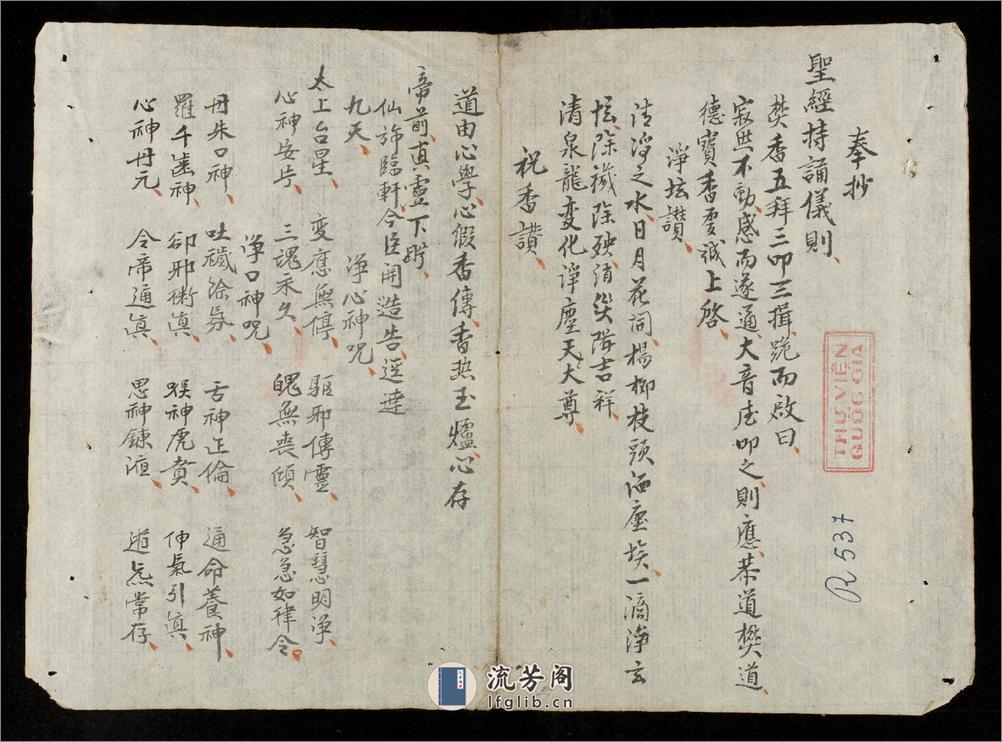 奉抄
聖經持誦儀則、
焚香五拜三叩三揖、跪而啟曰、
寂然不動、感而遂通、大音叩之則應、恭道樊道、
德寳香虔誠上啓、
淨坛讃、
净之水、日月花詞楊柳枝頭洒塵埃、一滴淨玄
坛、除穢除殃消災降吉祥、
清泉龍変化、淨塵天大尊、
祝香讃、
道由心學、心假香傳、香热玉爐、心存
帝前、真靈下盼、
仙旆臨軒、今臣関造告逕達
九天、 淨心神咒、
太上台星、 変應無停、 驅邪傳靈、 智慧明净、
心神安步、 三魂永久、 魄無喪傾、 急急如律令。
净口神咒、
丹朱口神、 吐穢除氛、 舌神正倫、 通命養神、
羅千歯神、 卻邪衛真、 猴神虎賁、 伸氣引真、
心神丹元、 令帝通真、 思神錬液、 道炁常存、
THƯ VIỆN
QUỐC GIA
R 537
流芳阁
lfglib.cn